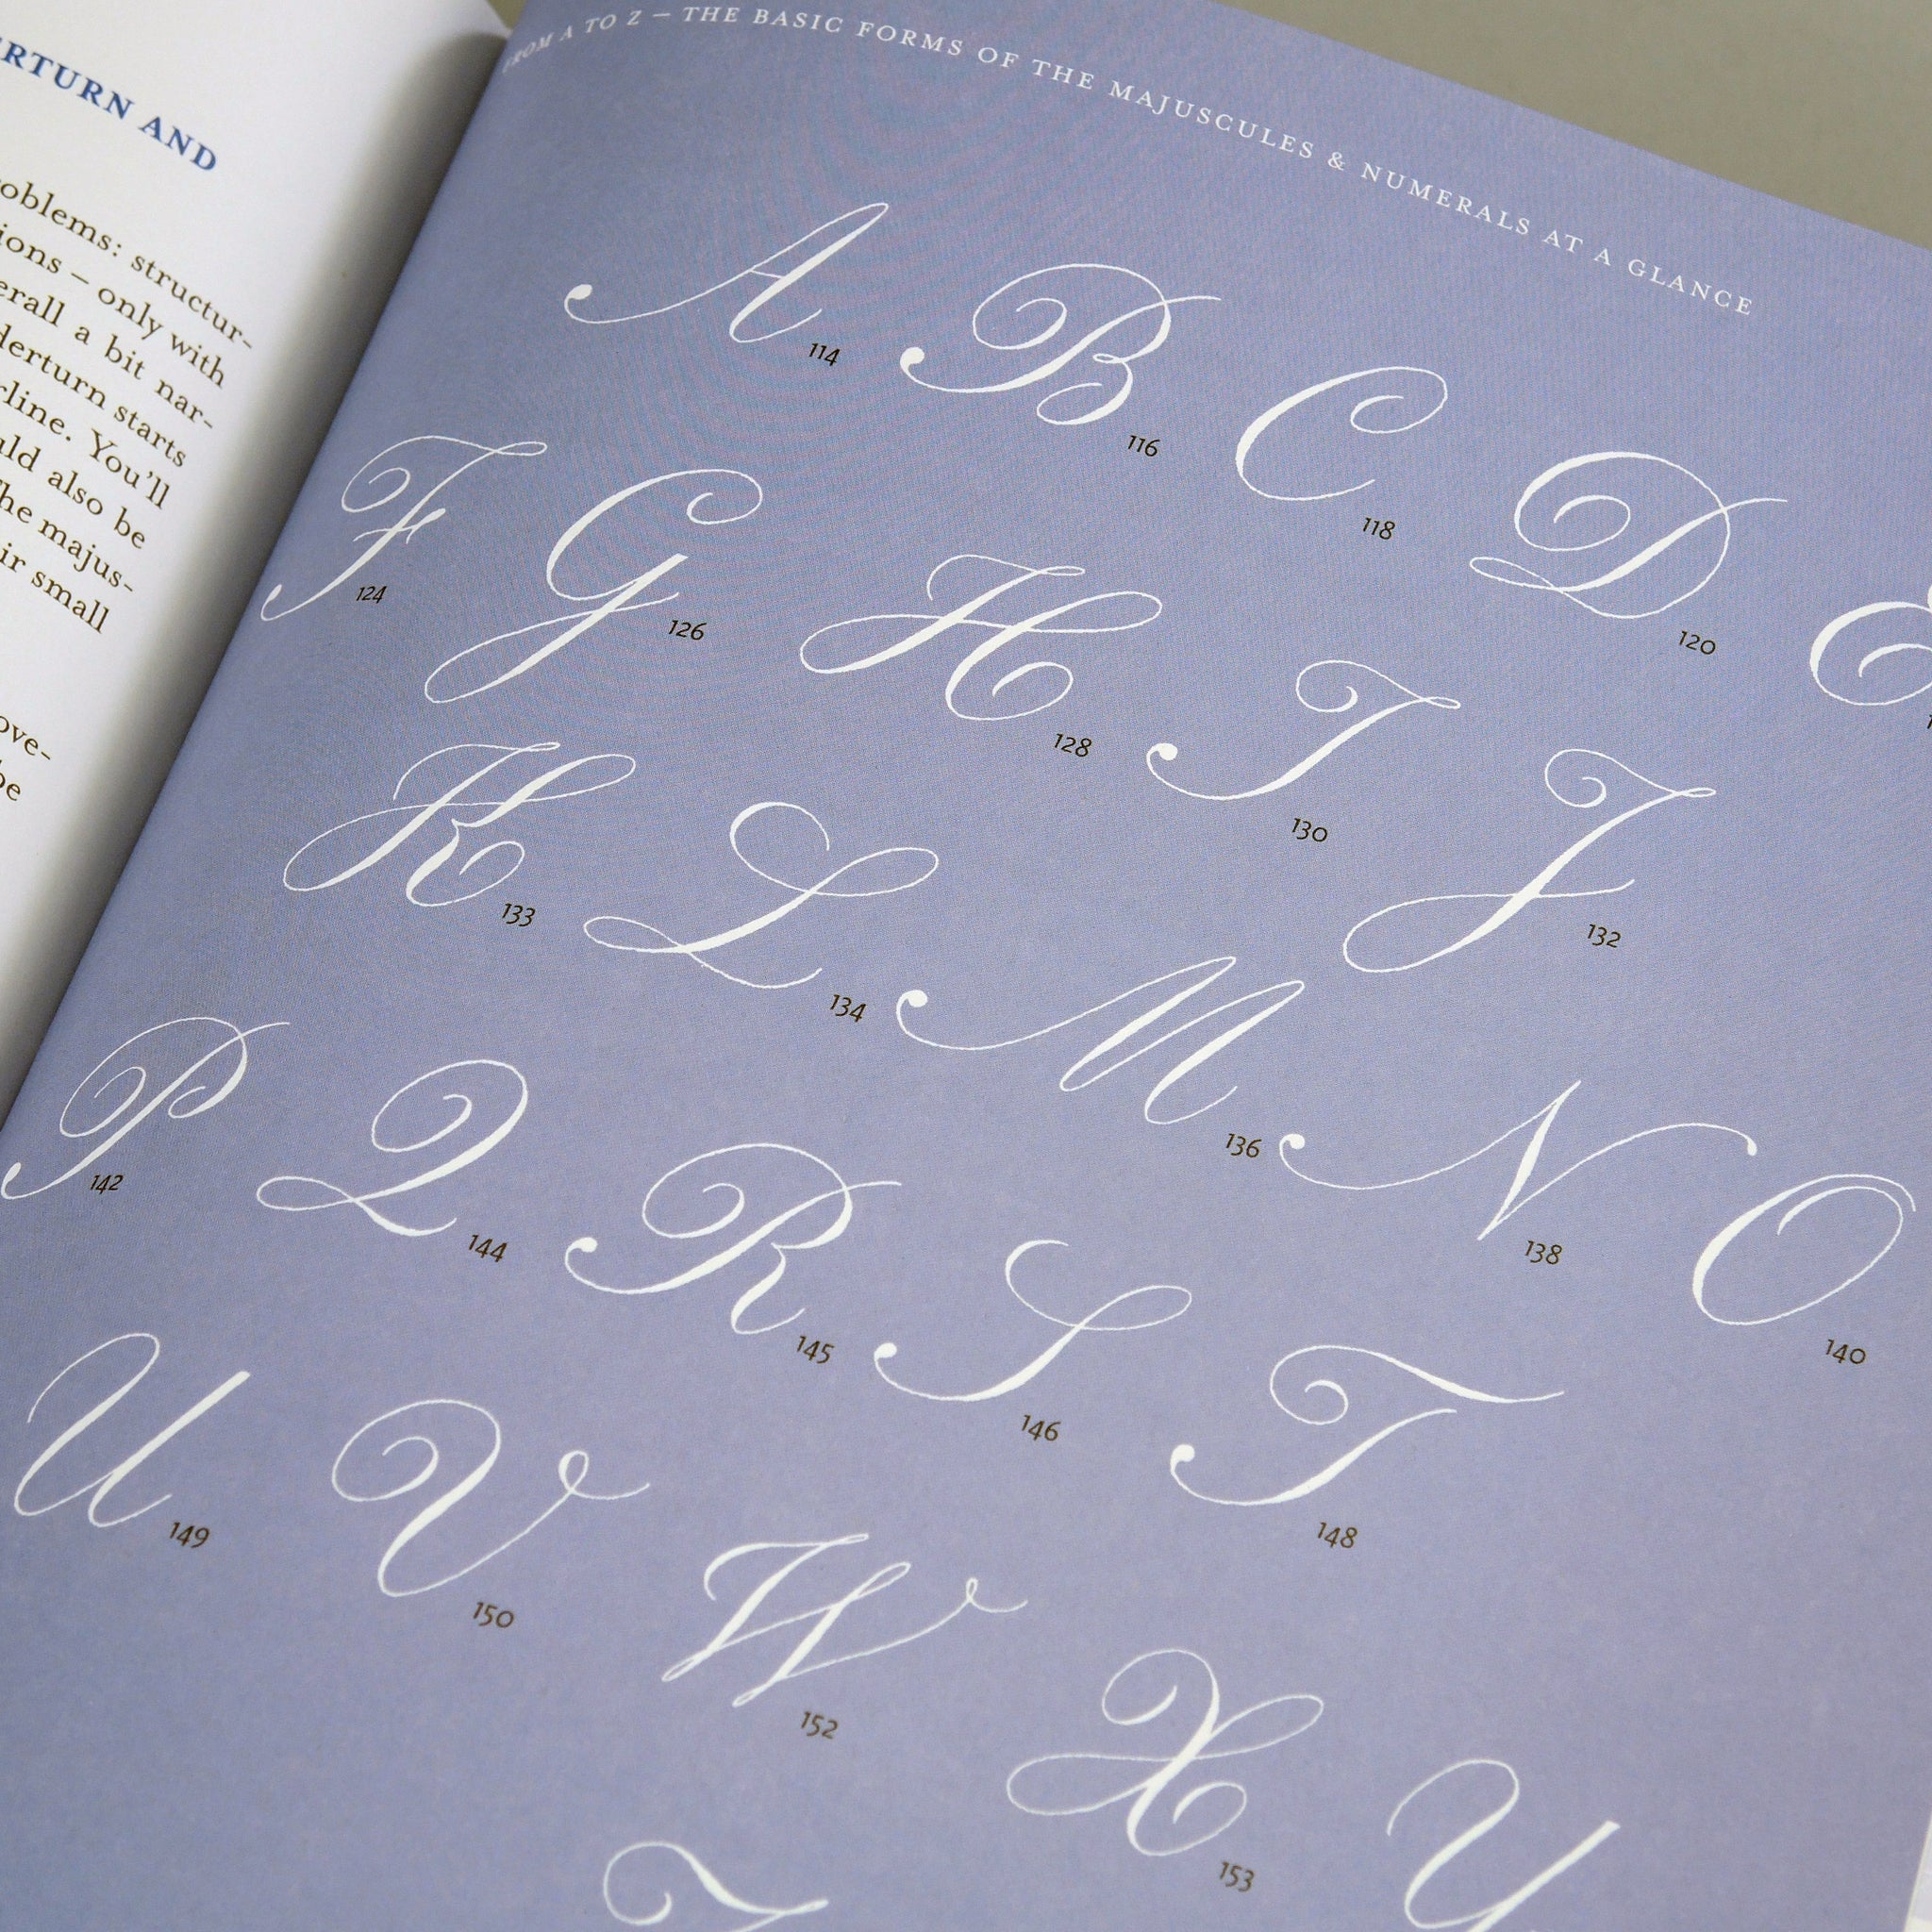 ERTURN AND
oblems: structur-
ions – only with
erall a bit nar-
derturn starts
rline. You'll
uld also be
he majus-
ir small
ove-
be
FROM A TO Z – THE BASIC FORMS OF THE MAJUSCULES & NUMERALS AT A GLANCE
A 114 B 116 C 118 D 120 E
F 124 G 126 H 128 I 130 J 132
K 133 L 134 M 136 N 138 O 140
P 142 Q 144 R 145 S 146 T 148
U 149 V 150 W 152 X 153 Y